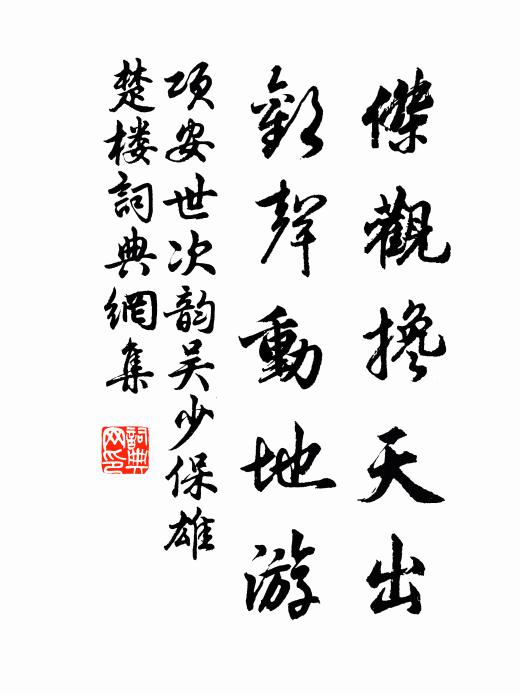 傑觀攙天出
歡聲動地游
項安世次韵吴少保雄
楚楼詞典網集
詞典网印